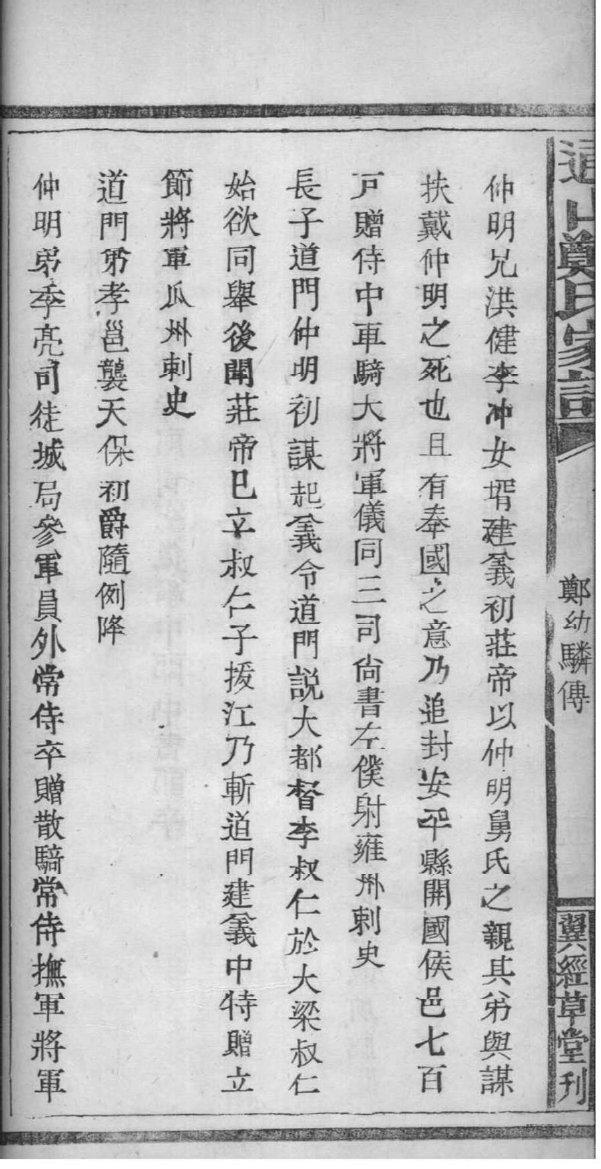 鄭氏家譜
鄭幼驎傳
翼經草堂刊
仲明兄洪健李冲女壻建義初莊帝以仲明舅氏之親其弟與謀
扶戴仲明之死也且有奉國之意乃追封安平縣開國侯邑七百
戸贈侍中車騎大將軍儀同三司尙書左僕射雍州刺史
長子道門仲明初謀起義令道門說大都督李叔仁於大梁叔仁
始欲同舉後聞莊帝已立叔仁子援江乃斬道門建義中特贈立
節將軍瓜州刺史
道門弟孝邕襲天保初爵隨例降
仲明弟季亮司徒城局參軍員外常侍卒贈散騎常侍撫軍將軍